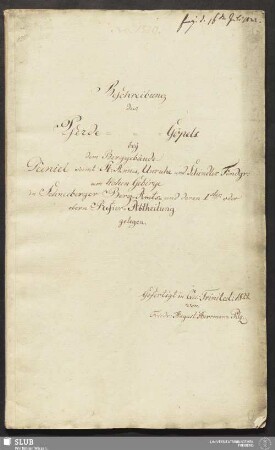 Beschreibung
des
Pferde - - Göpels
bey
dem Berggebäude
Daniel sammt St. Anna, Unruhe und Schindler Fundgr.
am hohen Gebirge
im Schneeberger Berg Amts und deren 1sten oder
obern Refier Abtheilung
gelegen.
Gefertigt in Luc. 1822
von
August Herrmann
SLUB
Wir führen Wissen.